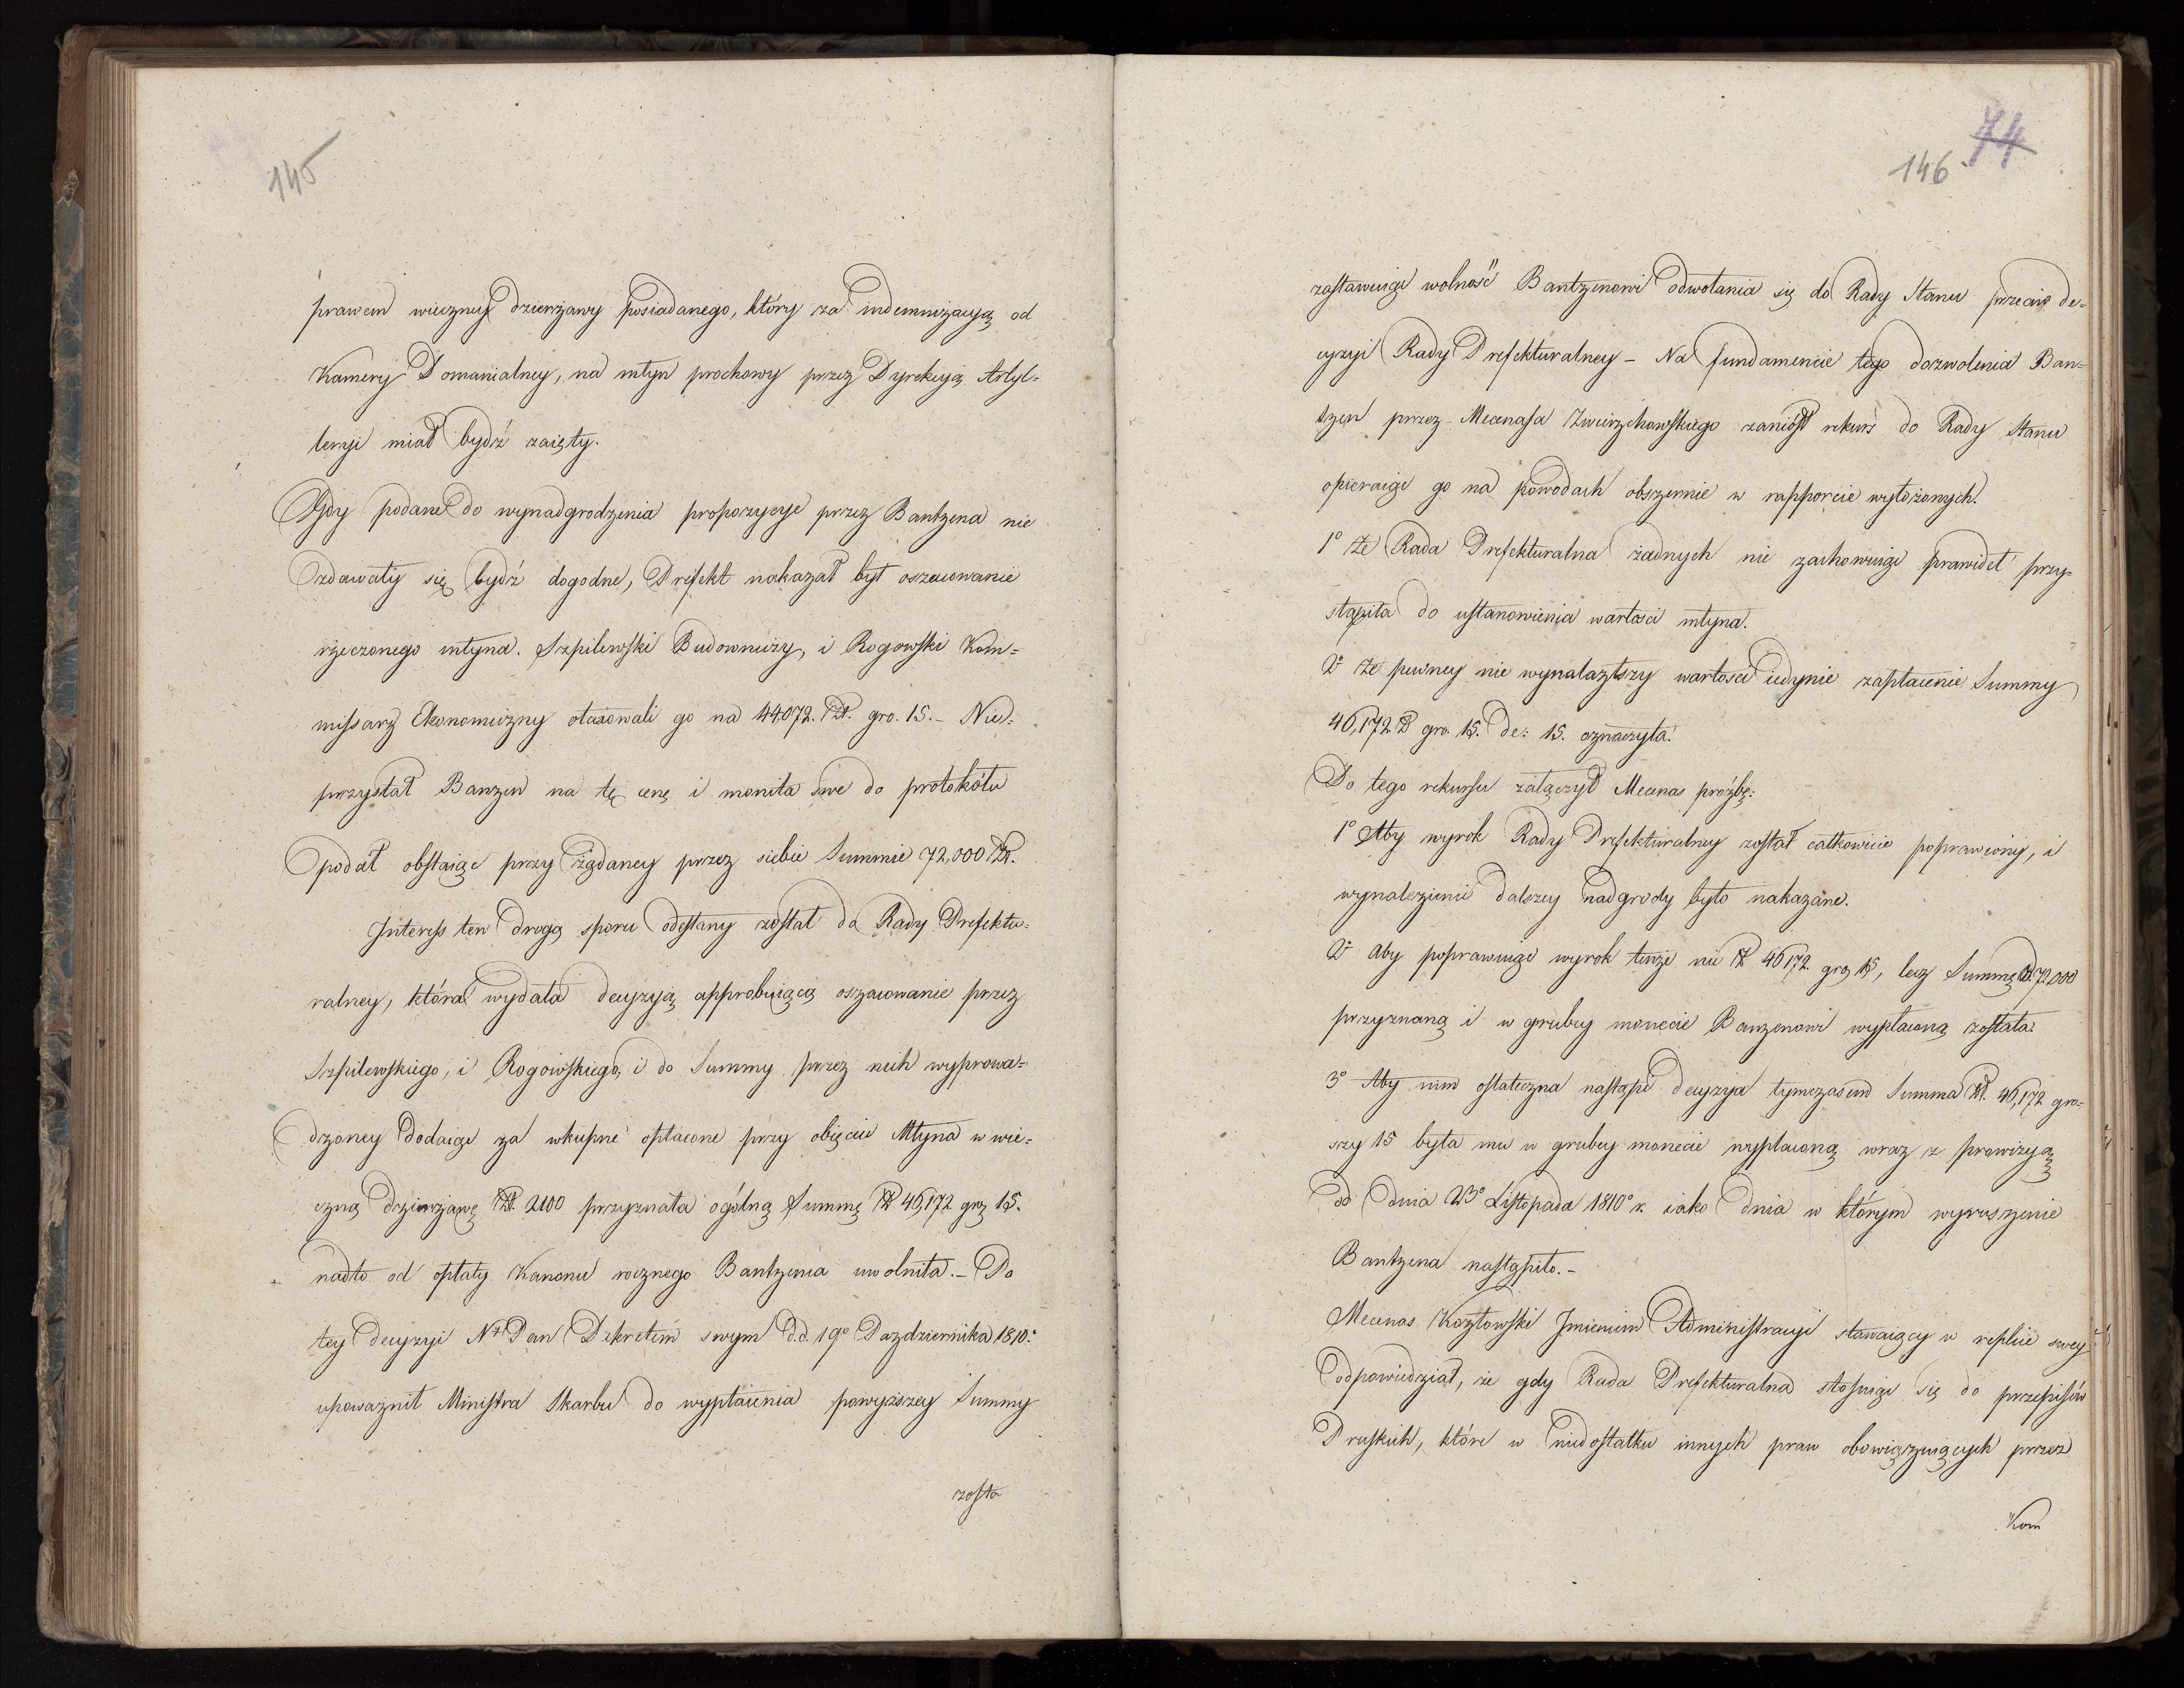 145
prawem wieczney dzierżawy posiadanego, który za indemnizacyą od
Kamery Domanialney, na młyn prochowy przez Dyrekcyą Artyl-
leryi miał bydź zaięty.
Gdy podane do wynadgrodzenia propozycye przez Bantzena nie
zdawały się bydź dogodne, Prefekt nakazał był oszacowanie
rzeczonego młyna. Szpilewski Budowniczy, i Rogowski Kom-
missarz Ekonomiczny otaxowali go na 44072. Zł. gro. 15. – Nie-
przystał Banzen na tę cenę i monita swe do protokółu
podał obstaiąc przy żądaney przez siebie Summie 72,000 Zł.
Interess ten drogą sporu odesłany został do Rady Prefektu-
ralney, która wydała decyzyą approbuiącą oszacowanie przez
Szpilewskiego, i Rogowskiego, i do Summy przez nich wyprowa-
dzoney dodaiąc za wkupne opłacone przy obięciu Młyna w wie-
czną dzierżawę Zł. 2100 przyznała ogólną Summę Zł 46,172 grz 15.
nadto od opłaty Kanonu rocznego Bantzena uwolniła. – Do
tey decyzyi Nł Pan Dekretem swym d.d. 19º Pazdziernika 1810.º
upoważnił Ministra Skarbu do wypłacenia powyższey Summy
zosta
146 74
zostawuiąc wolność Bantzenowi odwołania się do Rady Stanu przeciw de-
cyzyi Rady Prefekturalney – Na fundamencie tego dozwolenia Ban-
tzen przez Mecenasa Zwierzchowskiego zaniósł rekurs do Rady Stanu
opieraiąc go na powodach obszernie w rapporcie wyłożonych.
1º Że Rada Prefekturalna żadnych nie zachowuiąc prawideł przy-
stąpiła do ustanowienia wartości młyna.
2º że pewney nie wynalazłszy wartości iedynie zapłacenie Summy
46,172 Zł gro. 15. de: 15. oznaczyła.
Do tego rekursu załączył Mecenas proźbę:
1º Aby wyrok Rady Prefekturalney został całkowicie poprawiony, i
wynalezienie dalszey nadgrody było nakazane.
2º aby poprawuiąc wyrok tenże nie Zł 46172 grz 15, lecz Summę Zł. 72,000
przyznaną i w grubey monecie Banzenowi wypłaconą została.
3º Aby nim ostateczna nastąpi decyzya tymczasem Summa Zł. 46,172 gro-
szy 15 była mu w grubey monecie wypłaconą wraz z prowizyą
od dnia 23º Listopada 1810º r. iako dnia w którym wyruszenie
Bantzena nastąpiło. –
Mecenas Kozłowski Imieniem Administracyi stawaiący w replice swey
odpowiedział, że gdy Rada Prefekturalna stosuiąc się do przepisów
Pruskich, które w niedostatku innych praw obowiązuiących przez
Kom